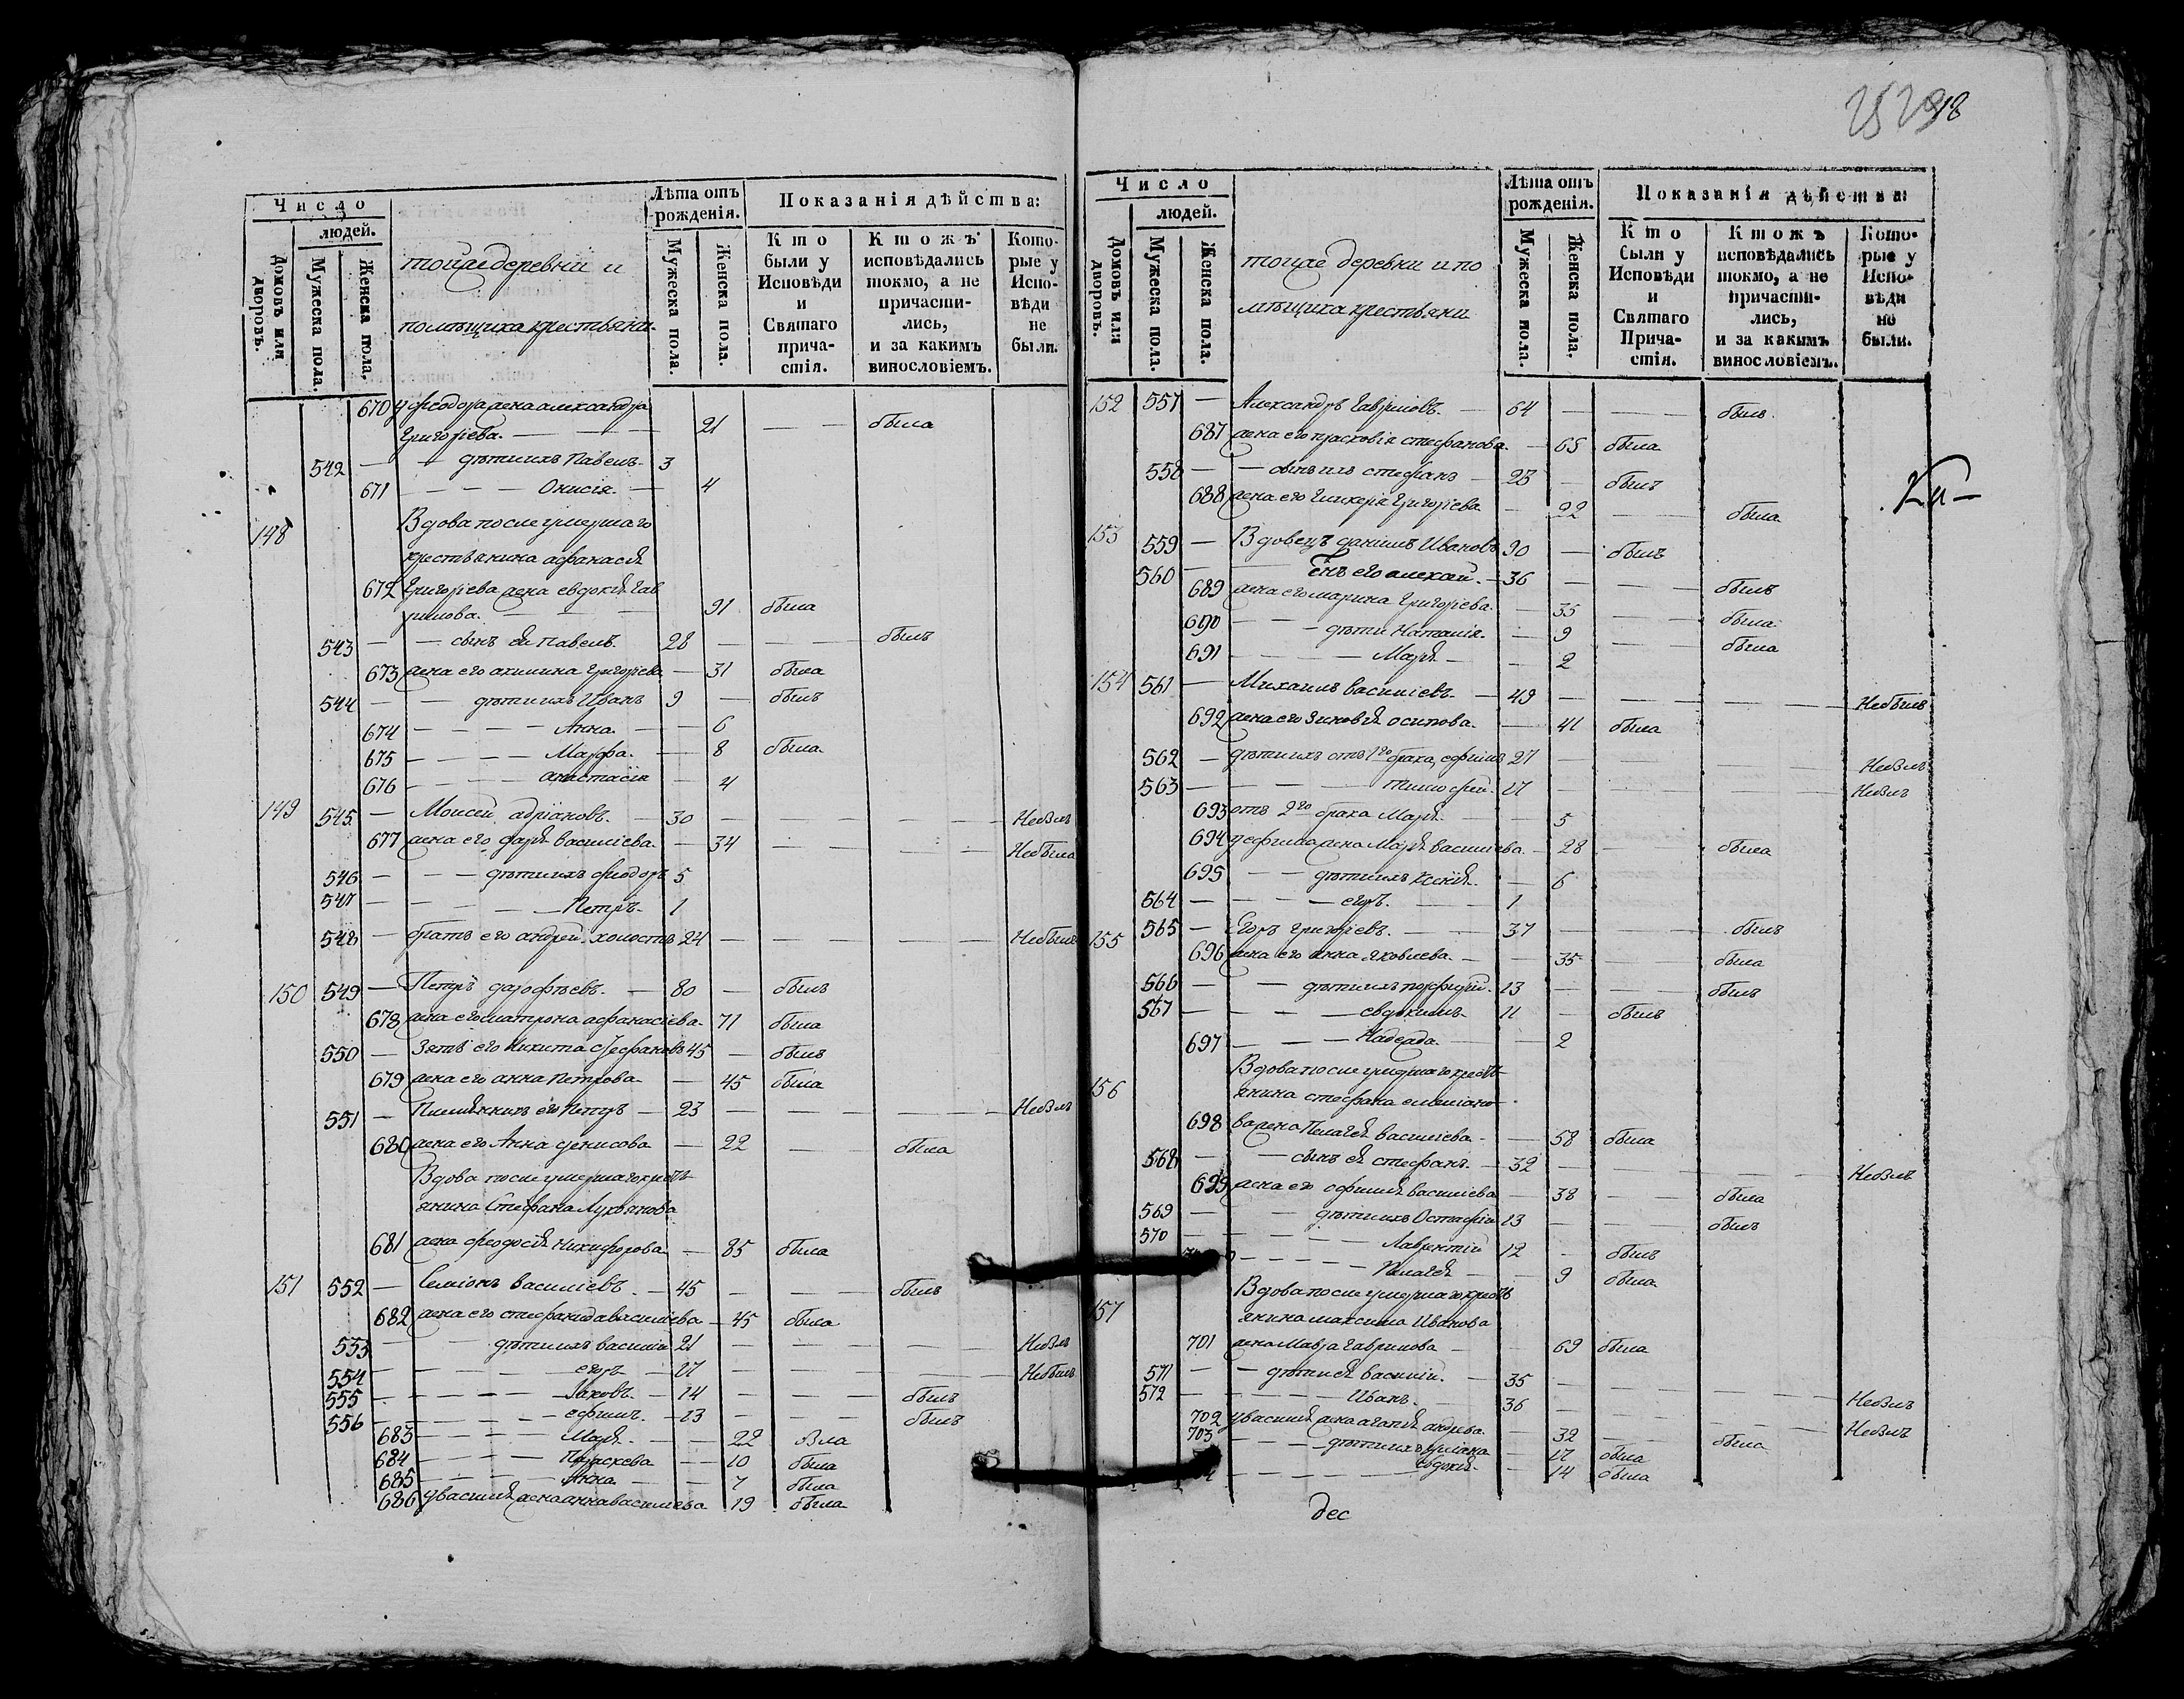 25 298
Число
людей.
Домовъ или дворовъ.
Мужеска пола.
Женска пола.
тоцже деревни и
помѣщиха крестьяни.
Лѣта отъ рожденія.
Мужеска пола.
Женска пола.
Показанія дѣйства:
Кто были у Исповѣди и Святаго прича-стія.
Кто жъ исповѣдались токмо, а не причасти-лись, и за какимъ винословіемъ.
Кото-рые у Испо-вѣди не были.
670 у феодора жена александра
Григоріева. — 21 — — была
542 — — дѣти ихъ Павелъ — 3
671 — — — Онисія. — 4
148 Вдова после умершаго
крестьянина афанасія
672 Григоріева жена евдокія Гав
рилова. — 91 была
543 — — сынъ ея Павелъ. 28 — — — былъ
673 жена его акилина Григоріева — 31 была
544 — — дѣти ихъ Иванъ 9 — былъ
674 — — — — Анна. — — 6
675 — — — — Марфа. — 8 была
676 — — — анастасія — 4
149 545 — Моисей адріановъ. — 30 — — — — — Небылъ
677 жена его дарія василіева. — 34 — — — — Небыла
546 — — — дѣти ихъ феодоръ 5
547 — — — — — Петръ — 1
548 — братъ его андрей. холостъ 24 — — — — — Небылъ
150 549 — Петръ дорофѣевъ. — 80 — былъ
678 жена его матрона афанасіева. 71 была
550 — Зять его Никита Стефановъ 45 — былъ
679 жена его анна Петрова — — 45 была
551 — Племянникъ его Петръ — 23 — — — — — Небылъ
680 жена его Анна денисова — 22 — — была
Вдова после умершаго кресть
янина Стефана Лукьянова
681 жена феодосія Никифорова — 85 была
151 552 — Семіонъ василіевъ. — 45 — — — былъ
682 жена его стефанида василіева — 45 была
553 — — дѣти ихъ василій 21 — — — — — Небылъ
554 — — — — егоръ — 17 — — — — Небылъ
555 — — — — — Іаковъ. — 14 — — — былъ
556 — — — — — ефимъ. — 13 — — — былъ
683 — — — — Марія — — 22 была
684 — — — — Параскева — — 10 была
685 — — — — Анна — — 7 была
686 у василія жена анна василіева 19 была
Число
людей.
Домовъ или дворовъ.
Мужеска пола.
Женска пола.
тоцже деревни и по
мѣщиха крестьяни
Лѣта отъ рожденія.
Мужеска пола.
Женска пола.
Показанія дѣйства:
Кто были у Исповѣди и Святаго Прича-стія.
Кто жъ исповѣдались токмо, а не причасти-лись, и за какимъ винословіемъ.
Кото-рые у Испо-вѣди не были.
152 557 — Александръ Гавриловъ. — 64 — — — былъ
687 жена его прасковія стефанова. — 65 была
558 — — сынъ ихъ стефанъ — 23 — былъ
688 жена его Гликерія Григоріева — 22 — — была
153 559 — Вдовецъ даніилъ Ивановъ 90 — былъ
560 — Сынъ его алексей. — 36 — — — былъ
689 жена его марина Григоріева. — 35 — — была
690 — — — дѣти Наталія. — 9 — — была
691 — — — — Марія — — 2
154 561 — Михаилъ василіевъ. — 49 — — — — — Небылъ
692 жена его Зиновія осипова. — 41 была
562 — дѣти ихъ отъ 1го брака, ефимъ 27 — — — — Небылъ
563 — — — — — тимофей. 17 — — — — — Небылъ
693 отъ 2го брака Марія. — 5
694 у ефима жена Марія василіева. — 28 — была
695 — — дѣти ихъ Ксенія. — 6
564 — — — — егоръ. — — 1
155 565 — Егоръ григоріевъ. — — 37 — — — былъ
696 жена его анна яковлева. — — 35 — — была
566 — — дѣти ихъ порфирій. 13 — — — былъ
567 — — — — евдокимъ. 11 — былъ
697 — — — Надежда. — — 2
156 Вдова после умершаго кресть
янина стефана емеліано
698 ва жена Пелагія василіева. — — 58 была
568 — — сынъ ея стефанъ. — 32 — — — — — Небылъ
699 жена его офимія василіева — 38 — — была
569 — — дѣти ихъ Остафій 13 — — — былъ
570 — — — — — Лаврентій 12 — былъ
— — — — Пелагія — — 9 была
157 Вдова после умершаго кресть
янина максима Иванова
701 жена Мавра Гаврилова — — 69 была
571 — — дѣти ея василій. — 35 — — — — — Небылъ
572 — — — — — Иванъ. 36 — — — — — Небылъ
702 у василія жена агапія андрева. — 32 — — была
703 — — — дѣти ихъ уліана — 17 была
— — — — — — евдокія. — 14 была
дес